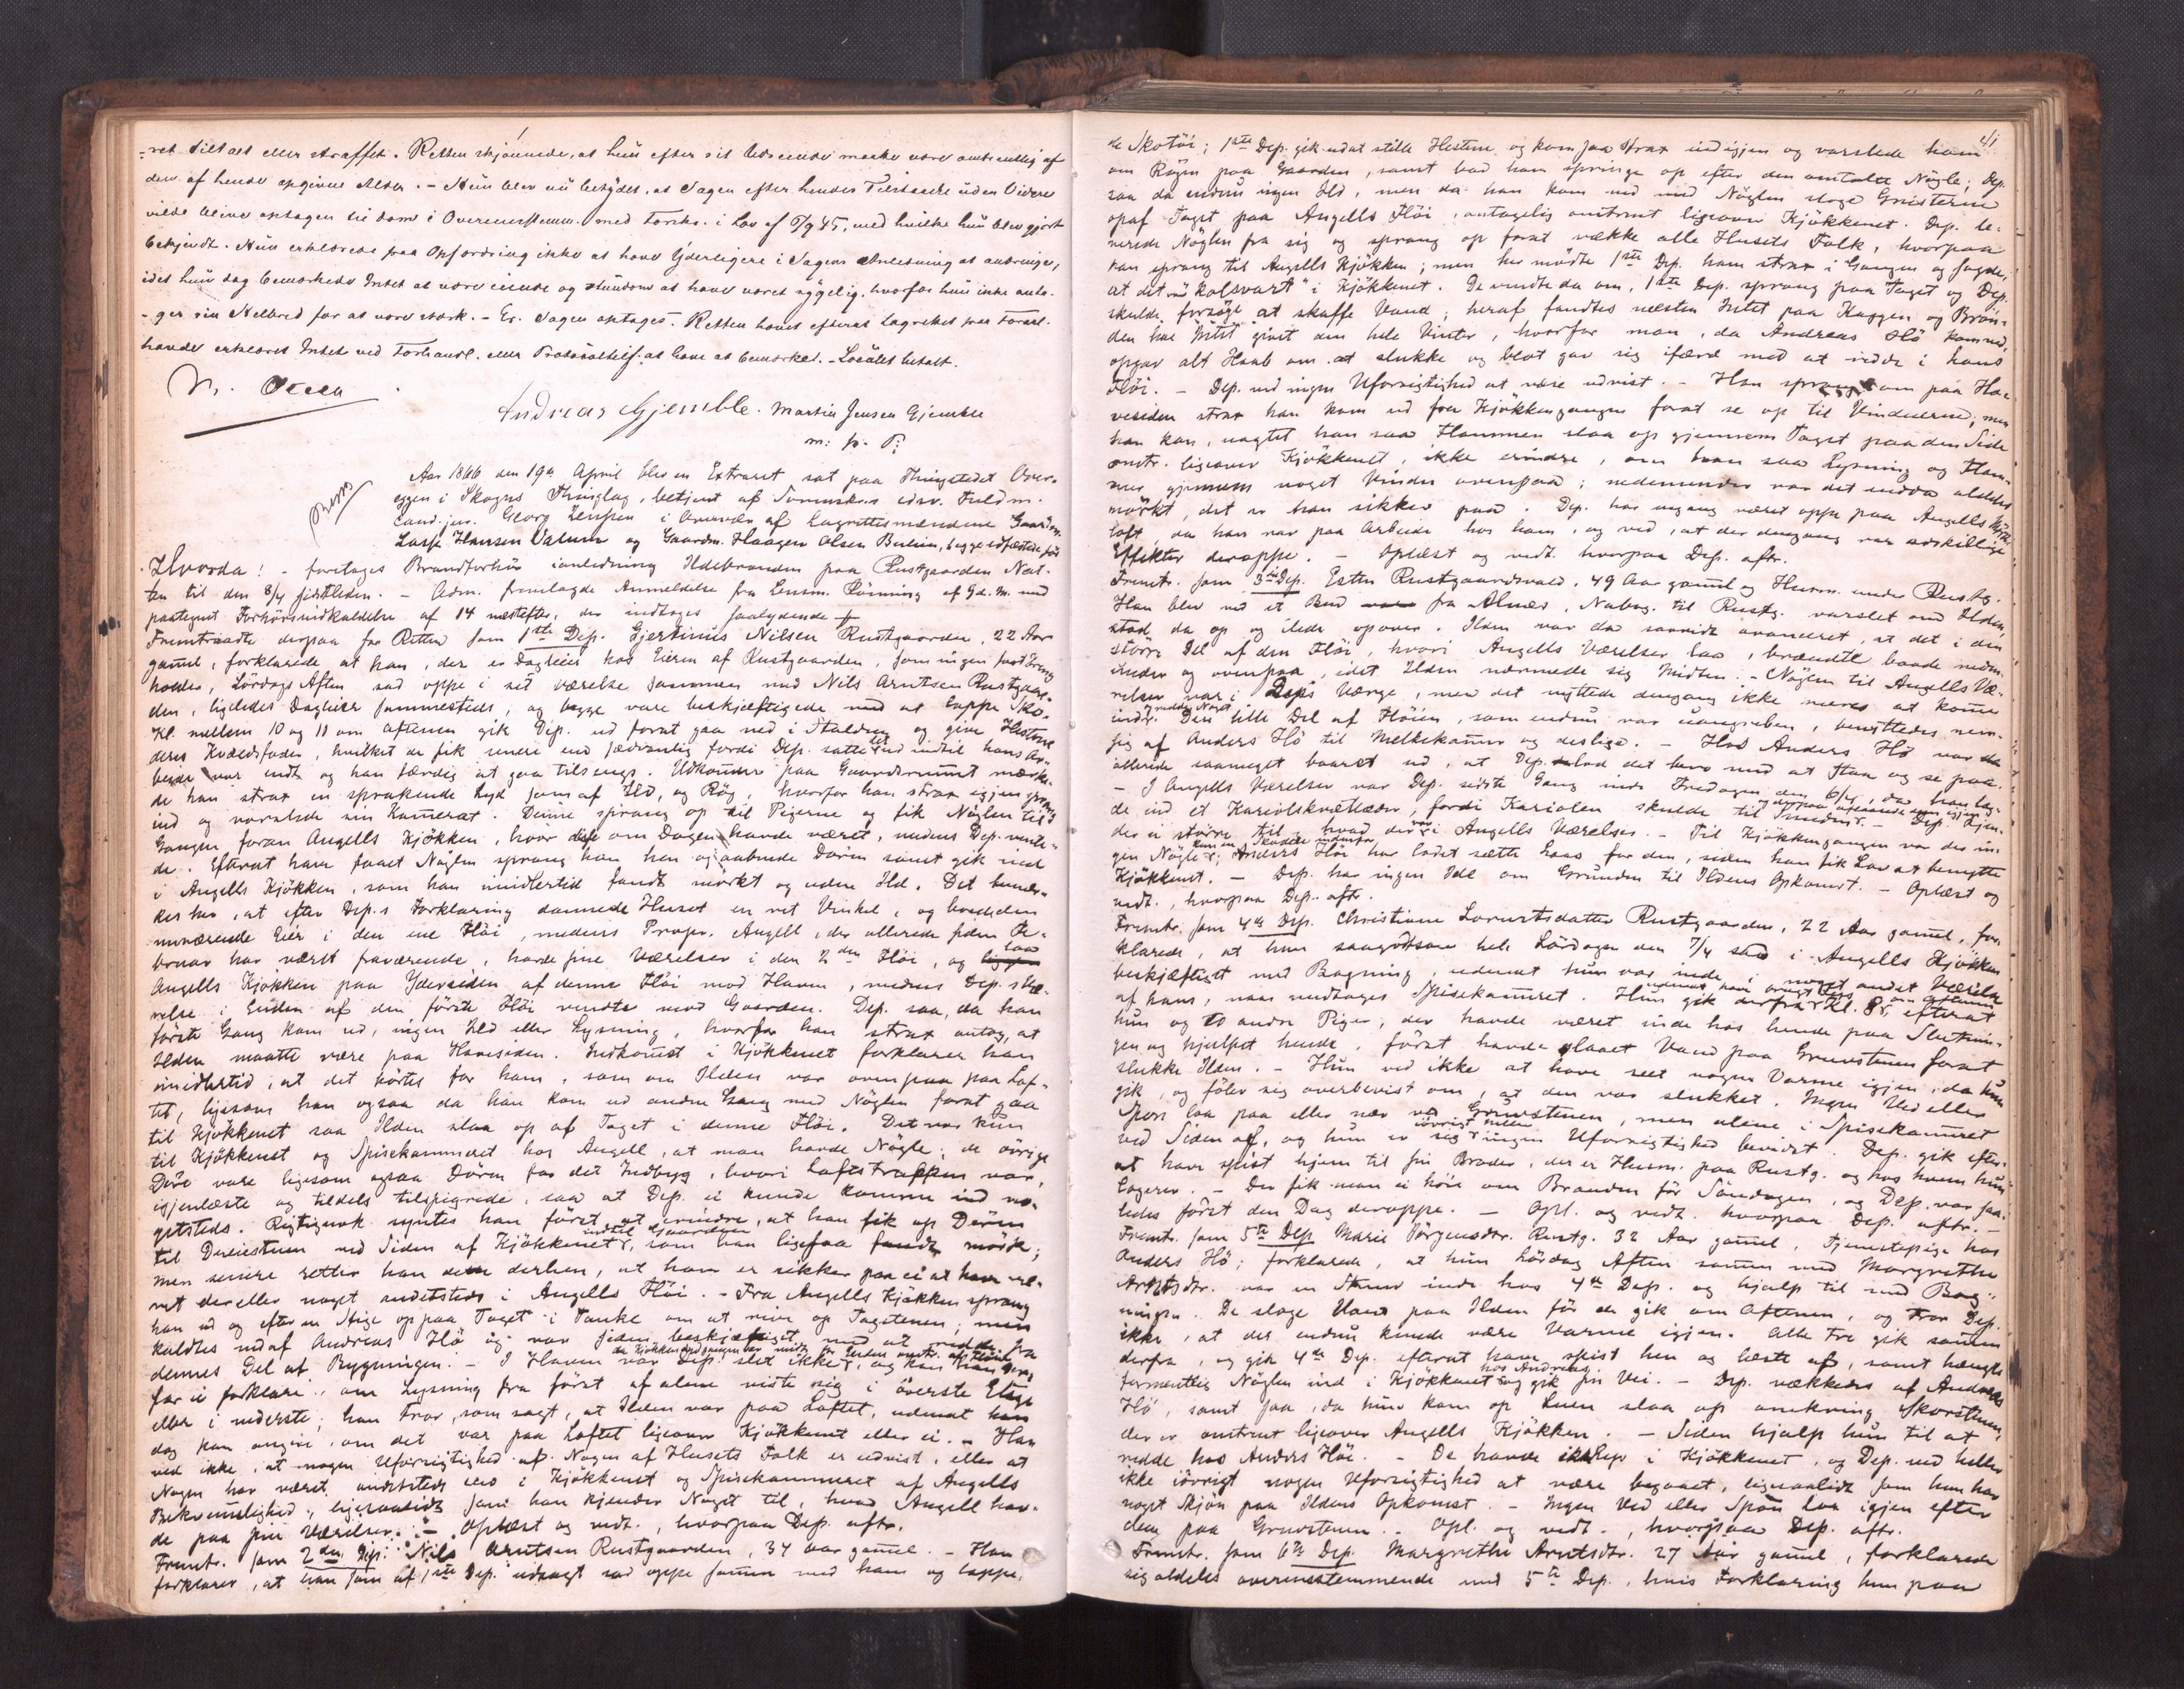 -ret tiltalt eller straffet. Retten skjønnede, at hun efter sit Udseende maatte være omtrentlig af
den af hende opgivne Alder. - Hun blev nu betydet, at Sagen efter hendes Tilstaaelse uden Videre
vilde blive optagen til Dom i Overensstemm. med Forskr. i Lov af 6/9 45, med hvilke hun blev gjort
bekjendt. Hun erklærede paa Opfordring ikke at have Yderligere i Sagens Anledning at anbringe,
idet hun dog bemærkede Intet at være eiende og stundom at have været sygelig, hvorfor hun ikke anta-
-ger sin Helbred for at være stærk. - Er. Sagen optages. Retten hævet efterat Lagrettet paa Forsl.
havde erklæret Intet ved Forhandl. eller Protokoltilf. at have at bemærke. - Localet betalt.
Andreas Gjemble. Martin Jensen Gjemble
m: p. P:
Aar 1866 den 19de April blev en Extraret sat paa Thingstedet Over-
eggen i Skogns Thinglag, betjent af Sorenskr.s edsv. Fuldm.
Cand. jur. Georg Jenssen i Overvær af Lagrettesmændene Gaardm.
Lasse Hansen Valum og Gaardm. Haagen Olsen Buhim, begge edfæstede før
Hvorda! - foretoges Brandforhør i anledning Ildebranden paa Rustgaarden Nat-
ten til den 8/4 sidstleden. - Adm. fremlagde Anmeldelse fra Lensm. Rønning af Gd. M. med
paategnet Forhørsudkaldelse af 14 næstefter, der indtages saalydende
Fremtraadte derpaa for Retten som 1ste Dep. Gjertinius Nilsen Rustgaarden, 22 Aar
gaml, forklarede at han, der er Dagleier hos Eieren af Rustgaarden, som ingen fast Dreng
holder, Lørdags Aften sad oppe i sit værelse sammen med Nils Arntsen Rustgaar-
den, ligeledes Dagleier sammesteds, og begge vare beskjæftigede med at lappe Sko.
Kl. mellem 10 og 11 om aftenen gik Dep. ud forat gaa ned i Stalden og give Hestene
deres Kveldsfoder, hvilket de fik senere end sædvanlig fordi Dep. satte ud indtil hans Ar-
beide var endt og han færdig at gaa tilsengs. Udkommen paa Gaardsrummet mærke-
de han strax en sprakende Lyd som af Ild, og Røg, hvorfor han strax igjen sprang
ind og varslede sin Kamerat. Denne sprang op til Pigerne og fik Nøglen til
Gangen foran Angells Kjøkken, hvor disse om Dagen havde været, medens Dep. vente-
de. Efterat have faaet Nøglen sprang han hen og aabnede Døren samt gik ind
i Angells Kjøkken, som han imidlertid fandt mørkt og uden Ild. Det bemær-
kes her, at efter Dep.s Forklaring dannede Huset en ret Vinkel, og boede den
nuværende Eier i den ene Fløi, medens Propr. Angell, der allerede siden Fe-
bruar har været fraværende, havde sine Værelser i den 2den Fløi, og laa
Angells Kjøkken paa Ydersiden af denne Fløi mod Haven, medens Dep.s Væ-
relse i Enden af den første Fløi vendte mod Gaarden. Dep. saa, da han
første Gang kom ud, ingen Ild eller Lysning, hvorfor han strax antog, at
Ilden maatte være paa Havesiden. Indkommet i Kjøkkenet forklarer han
imidlertid, at det hørtes for ham, som om Ilden var ovenpaa paa Lof-
tet, ligesom han ogsaa da han kom ud anden Gang med Nøglen forat gaa
til Kjøkkenet saa Ilden slaa op af Taget i denne Fløi. Det var kun
til Kjøkkenet og Spisekammeret hos Angell, at man havde Nøgle; de øvrige
Døre vare ligesom ogsaa Døren for det Indbyg, hvori Loftstrappen var,
igjenlæste og tildels tilspigrede, saa at Dep. ei kunde komme ind no-
getsteds. Rigtignok syntes han først at erindre, at han fik op Døren
til Dreiestuen ved Siden af Kjøkkenet indtil Gaarden, som han ligesaa fandt mørk;
men senere retter han dette derhen, at han er sikker paa ei at have væ-
ret der eller noget andetsteds i Angells Fløi. - Fra Angells Kjøkken sprang
han ud og efter en Stige op paa Taget i Tanke om at rive op Tagstenen; men
kaldtes ned af Andreas Hø og var siden beskjæftiget med at redde fra
dennes Del af Bygningen. - I Haven var Dep. slet ikke, og kan han der-
for ei forklare, om Lysning fra først af alene viste sig i øverste Etage
eller i nederste; han tror, som sagt, at Ilden var paa Loftet, uden at han
dog kan angive, om det var paa Loftet ligeover Kjøkkenet eller ei. - Han
ved ikke, at nogen Uforsigtighed af Nogen af Husets Folk er udvist, eller at
Nogen har været andetsteds end i Kjøkkenet og Spisekammeret af Angells
Bekvemmelighed, ligesaalidt som han kjender Noget til, hvad Angell hav-
de paa sine Værelser. - Oplæst og vedt., hvorpaa Dep. aftr.
Fremtr. som 2den Dep. Nils Arntsen Rustgaarden, 34 Aar gammel. - Han
forklarer, at han som af 1ste Dep. udsagt sad oppe sammen med ham og lappe-
41
de Skotøi; 1ste Dep. gik ud at stille Hestene og kom saa strax ind igjen og varslede ham
om Røgen paa Gaarden, samt bad ham springe op efter den omtalte Nøgle; Dep.
saa da endnu ingen Ild, men da han kom ned med Nøglen sloge Gnisterne
op af Taget paa Angells Fløi, antagelig omtrent ligeover Kjøkkenet. Dep. le-
verede Nøglen fra sig og sprang op forat vække alle Husets Folk, hvorpaa
han sprang til Angells Kjøkken; men her mødte 1ste Dep. ham strax i Gangen og sagde,
at det var "kolsvart" i Kjøkkenet. De vendte da om, 1ste Dep. sprang paa Taget og Dep.
skulde forsøge at skaffe Vand; heraf fandtes næsten Intet paa Kaggen og Brøn-
den har Intet givet den hele Vinter, hvorfor man, da Andreas Hø kom ned,
opgav alt Haab om at slukke og blot gav sig ifærd med at redde i hans
Fløi. - Dep. ved ingen Uforsigtighed at være udvist. - Han sprang om paa Ha-
vesiden strax han kom ud fra Kjøkkengangen forat se op til Vinduerne; men
han kan, uagtet han saa Flammen slaa op gjennem Taget paa den Side
omtr. ligeover Kjøkkenet, ikke erindre, om han saa Lysning og Flam-
mer gjennem noget Vindu ovenpaa; nedenunder var det endda aldeles
mørkt, det er han sikker paa. Dep. har engang været oppe paa Angells Mørk-
loft, da han var paa Arbeide hos ham, og ved, at der dengang var adskillige
Effekter deroppe. - Oplæst og vedt. hvorpaa Dep. aftr.
Fremtr. som 3die Dep. Esten Rustgaardsvald, 49 Aar gammel og Husm. under Rustg.
Han blev ved et Bud fra Alnæs, Nabog. til Rustg. varslet om Ilden,
stod da op og ilede opover. Ilden var da saavidt avanceret, at det i den
større Del af den Fløi, hvori Angells Værelser laa, brændte baade neden-
under og ovenpaa, idet Ilden nærmede sig Midten. - Nøglen til Angells Væ-
relser var i Dep.s Værge, men det nyttede dengang ikke mere at komme
ind. Den lille Del af Fløien, som endnu var uangreben, benyttedes nem-
lig af Anders Hø til Melkekammer og deslige. - Hos Anders Hø var da
allerede saameget baaret ud, at Dep. lod det bero med at staa og se paa.
- I Angells Værelser var Dep. sidste Gang inde Fredagen den 6/4, da han lag-
de ind et Kariolskvætlæder, fordi Kariolen skulde til Smeden. - Dep. kjen-
der ei større til, hvad der var i Angells Værelser. - Til Kjøkkengangen var der in-
gen Nøgle; Anders Høi har ladet sætte Laas for den, siden han fik Lov at benytte
Kjøkkenet. - Dep. har ingen Idé om Grunden til Ildens Opkomst. - Oplæst og
vedt., hvorpaa Dep. aftr.
Fremtr. som 4de Dep. Christiane Lorentsdatter Rustgaarden, 22 Aar gammel, for-
klarede, at hun saagodtsom hele Lørdagen den 7/4 sad i Angells Kjøkken
beskjæftiget med Bagning, uden at hun var inde i noget andet Værelse
af hans, naar undtages Spisekammeret. Hun gik derfra Kl. 8 om aftenen efterat
hun og to andre Piger, der havde været inde hos hende paa Slutnin-
gen og hjulpet hende, først havde slaaet Vand paa Gruestenen forat
slukke Ilden. - Hun ved ikke at have seet nogen Varme igjen, da hun
gik, og føler sig overbevist om, at den var slukket. Ingen Ved eller
Spon laa paa eller nær ved Gruestenen, men alene i Spisekammeret
ved Siden af, og hun er sig iøvrigt heller ingen Uforsigtighed bevidst. Dep. gik efter
at have spist hjem til sin Broder, der er Husm. paa Rustg. og hos hvem hun
logerer. - Der fik man ei høre om Branden før Søndagen, og Dep. var saa-
ledes først den Dag deroppe. - Opl. og vedt. hvorpaa Dep. aftr. -
Fremtr. som 5te Dep. Marie Jørgensdtr. Rustg. 32 Aar gammel, Tjenestepige hos
Anders Hø; forklarede, at hun Lørdag Aften sammen med Margrethe
Arntsdtr. var en Stund inde hos 4de Dep. og hjalp til med Bag-
ningen. De sloge Vand paa Ilden før de gik om Aftenen, og tror Dep.
ikke, at der endnu kunde være Varme igjen. Alle tre gik sammen
derfra, og gik 4de Dep. efterat have spist hen og læste af, samt hængte
formentlig Nøglen ind i Kjøkkenet hos Andreas og gik sin Vei. - Dep. vækkedes af Anders
Hø, samt saa, da hun kom op Luen slaa op omkring Skorstenen,
der er omtrent ligeover Angells Kjøkken. - Siden hjalp hun til at
redde hos Anders Høi. - De havde ikke Lys i Kjøkkenet, og Dep. ved heller
ikke iøvrigt nogen Uforsigtighed at være begaaet, ligesaalidt som hun har
noget Skjøn paa Ildens Opkomst. - Ingen Ved eller Spon laa igjen efter
dem paa Gruestenen. - Opl. og vedt., hvorpaa Dep. aftr.
Fremtr. som 6te Dep. Margrethe Arntsdtr. 27 Aar gammel, forklarede
sig aldeles overensstemmende med 5te Dep., hvis Forklaring hun paa